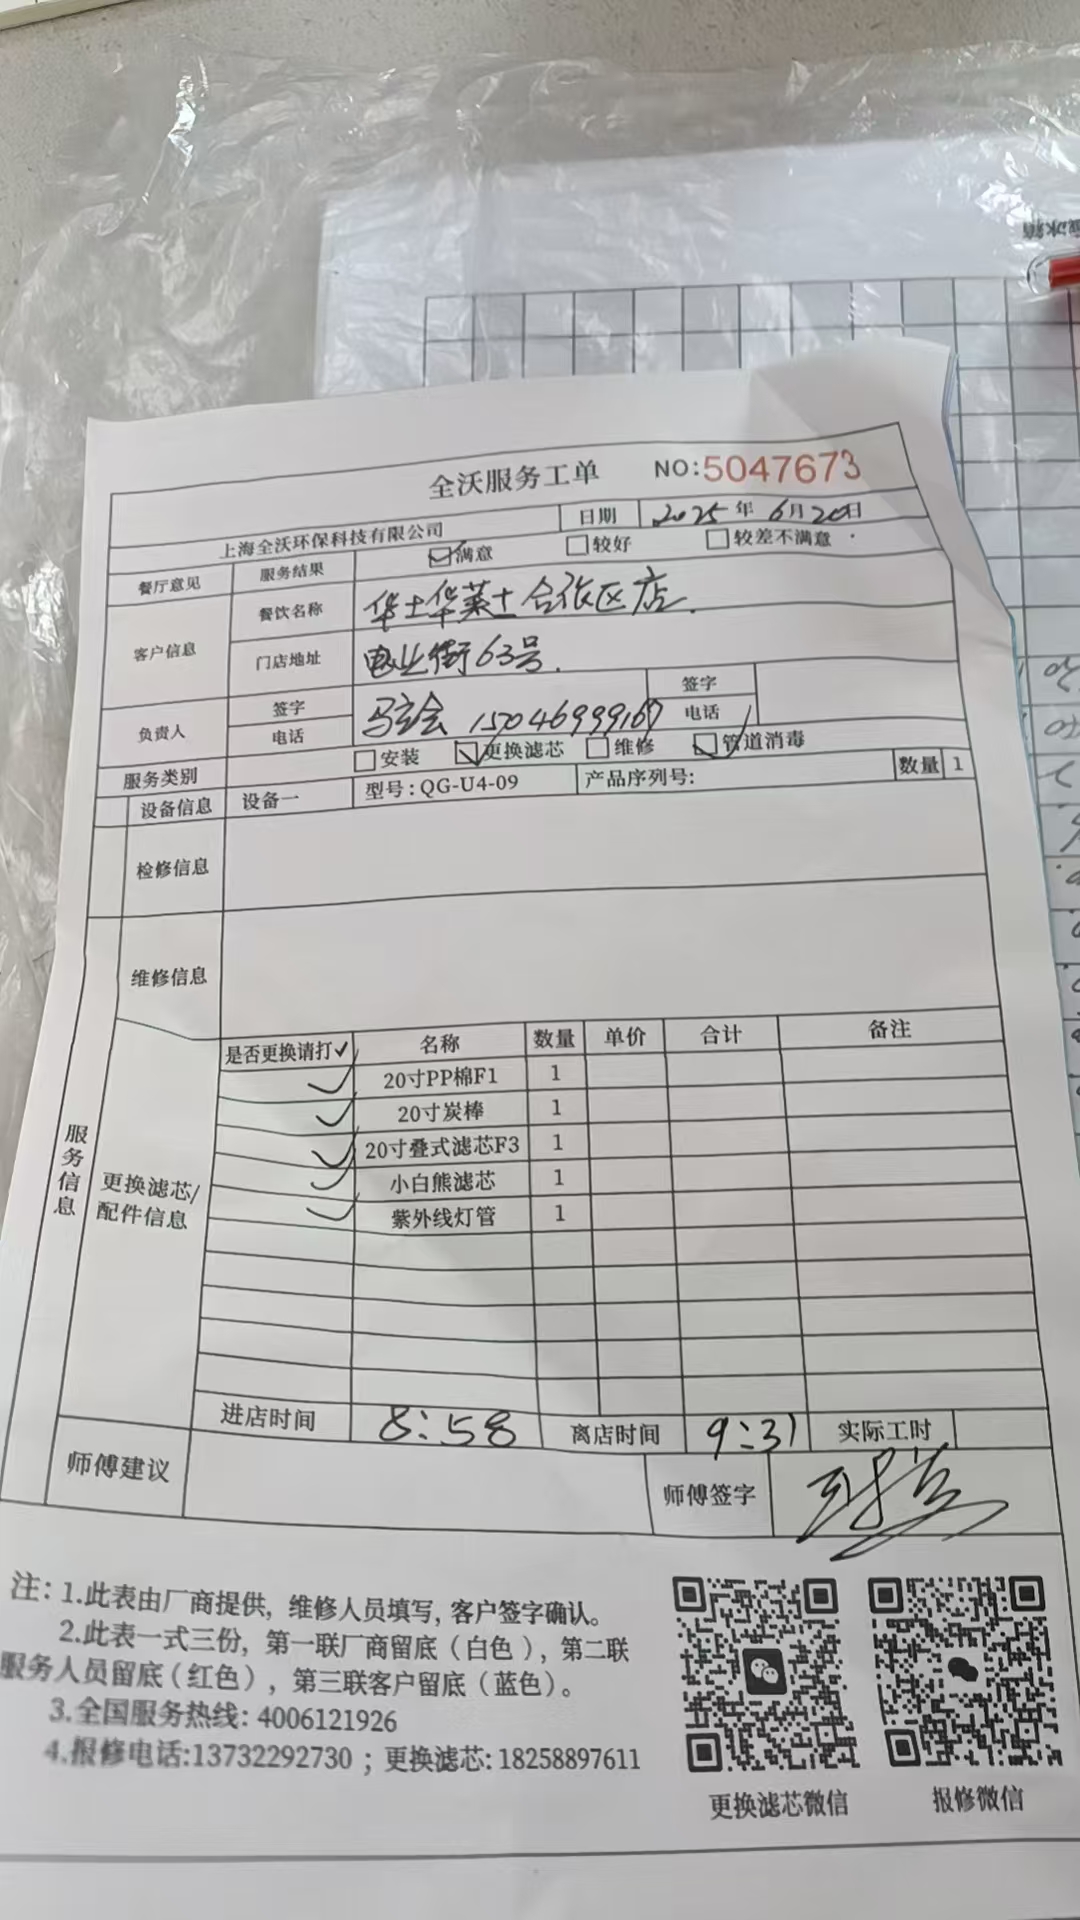 全沃服务工单 NO:5047673
上海全沃环保科技有限公司 日期 2025年6月20日
餐厅意见 服务结果 满意 较好 较差不满意
客户信息 餐饮名称 华士华莱士合张区店.
门店地址 电业街63号.
负责人 签字 签字
电话 15046999167 电话
服务类别 安装 更换滤芯 维修 管道消毒
设备信息 设备一 型号:QG-U4-09 产品序列号: 数量 1
检修信息
维修信息
服务信息
更换滤芯/配件信息
是否更换请打✓ 名称 数量 单价 合计 备注
✓ 20寸PP棉F1 1
✓ 20寸炭棒 1
✓ 20寸叠式滤芯F3 1
✓ 小白熊滤芯 1
✓ 紫外线灯管 1
进店时间 8:58 离店时间 9:31 实际工时
师傅建议 师傅签字
注: 1.此表由厂商提供, 维修人员填写, 客户签字确认。
2.此表一式三份, 第一联厂商留底 (白色), 第二联
服务人员留底 (红色), 第三联客户留底 (蓝色)。
3.全国服务热线: 4006121926
4.报修电话:13732292730 ; 更换滤芯: 18258897611
更换滤芯微信 报修微信